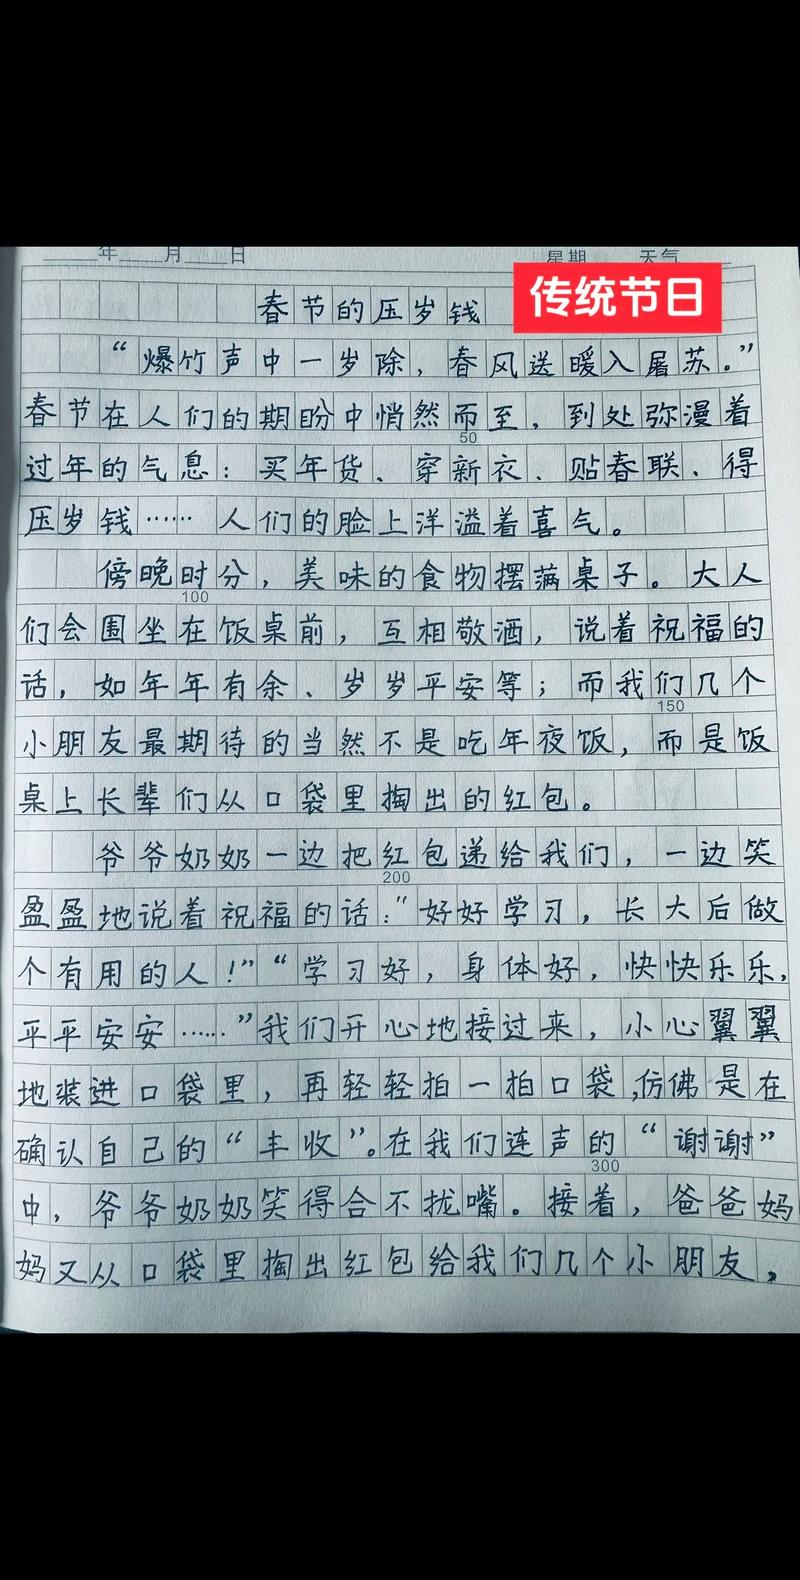 年 月 日 星期 天气
传统节日
春节的压岁钱
“爆竹声中一岁除，春风送暖入屠苏。”
春节在人们的期盼中悄然而至，到处弥漫着
50
过年的气息：买年货、穿新衣、贴春联、得
压岁钱…… 人们的脸上洋溢着喜气。
傍晚时分，美味的食物摆满桌子。大人
100
们会围坐在饭桌前，互相敬酒，说着祝福的
话，如年年有余、岁岁平安等；而我们几个
150
小朋友最期待的当然不是吃年夜饭，而是饭
桌上长辈们从口袋里掏出的红包。
爷爷奶奶一边把红包递给我们，一边笑
200
盈盈地说着祝福的话：“好好学习，长大后做
个有用的人！”“学习好，身体好，快快乐乐，
平平安安……”我们开心地接过来，小心翼翼
地装进口袋里，再轻轻拍一拍口袋，仿佛是在
确认自己的“丰收”。在我们连声的“谢谢”
300
中，爷爷奶奶笑得合不拢嘴。接着，爸爸妈
妈又从口袋里掏出红包给我们几个小朋友，